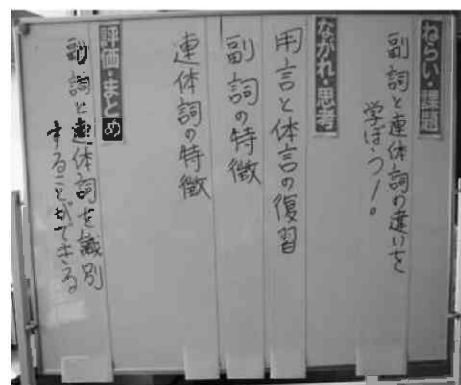 ねらい・課題
副詞と連体詞の違いを
学ぼう!。
ながれ・思考
用言と体言の復習
副詞の特徴
連体詞の特徴
評価・まとめ
副詞と連体詞を識別
することができる